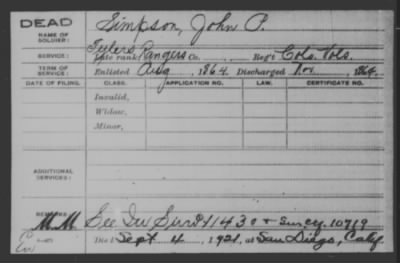 DEAD
NAME OF SOLDIER: Simpson, John P.
SERVICE: Tylers Rangers Late rank, Co. , Reg't Colo. Vols.
TERM OF SERVICE: Enlisted Aug , 1864. Discharged Nov , 1864.
DATE OF FILING. CLASS. APPLICATION NO. LAW. CERTIFICATE NO.
Invalid,
Widow,
Minor,
ADDITIONAL SERVICES:
REMARKS: See Inv 11430 & Surv. 10719
M.M
Died Sept 4 , 1921, at San Diego, Calif